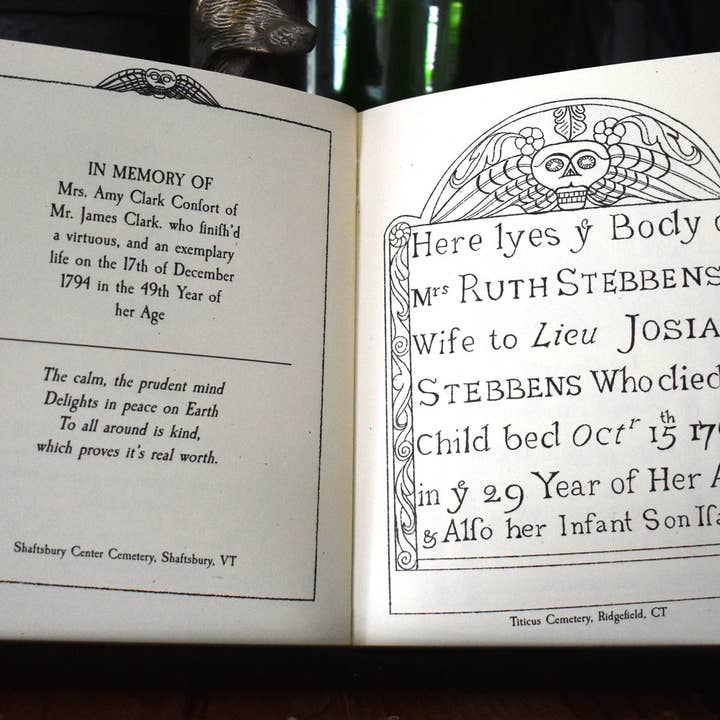 IN MEMORY OF
Mrs. Amy Clark Confort of
Mr. James Clark. who finiſh'd
a virtuous, and an exemplary
life on the 17th of December
1794 in the 49th Year of
her Age
The calm, the prudent mind
Delights in peace on Earth
To all around is kind,
which proves it's real worth.
Shaftsbury Center Cemetery, Shaftsbury, VT
Here lyes yͤ Body
Mrs RUTH STEBBENS
Wife to Lieu JOSIA
STEBBENS Who died
Child bed Octr 15th 17
in yͤ 29 Year of Her A
& Alſo her Infant Son Iſa
Titicus Cemetery, Ridgefield, CT